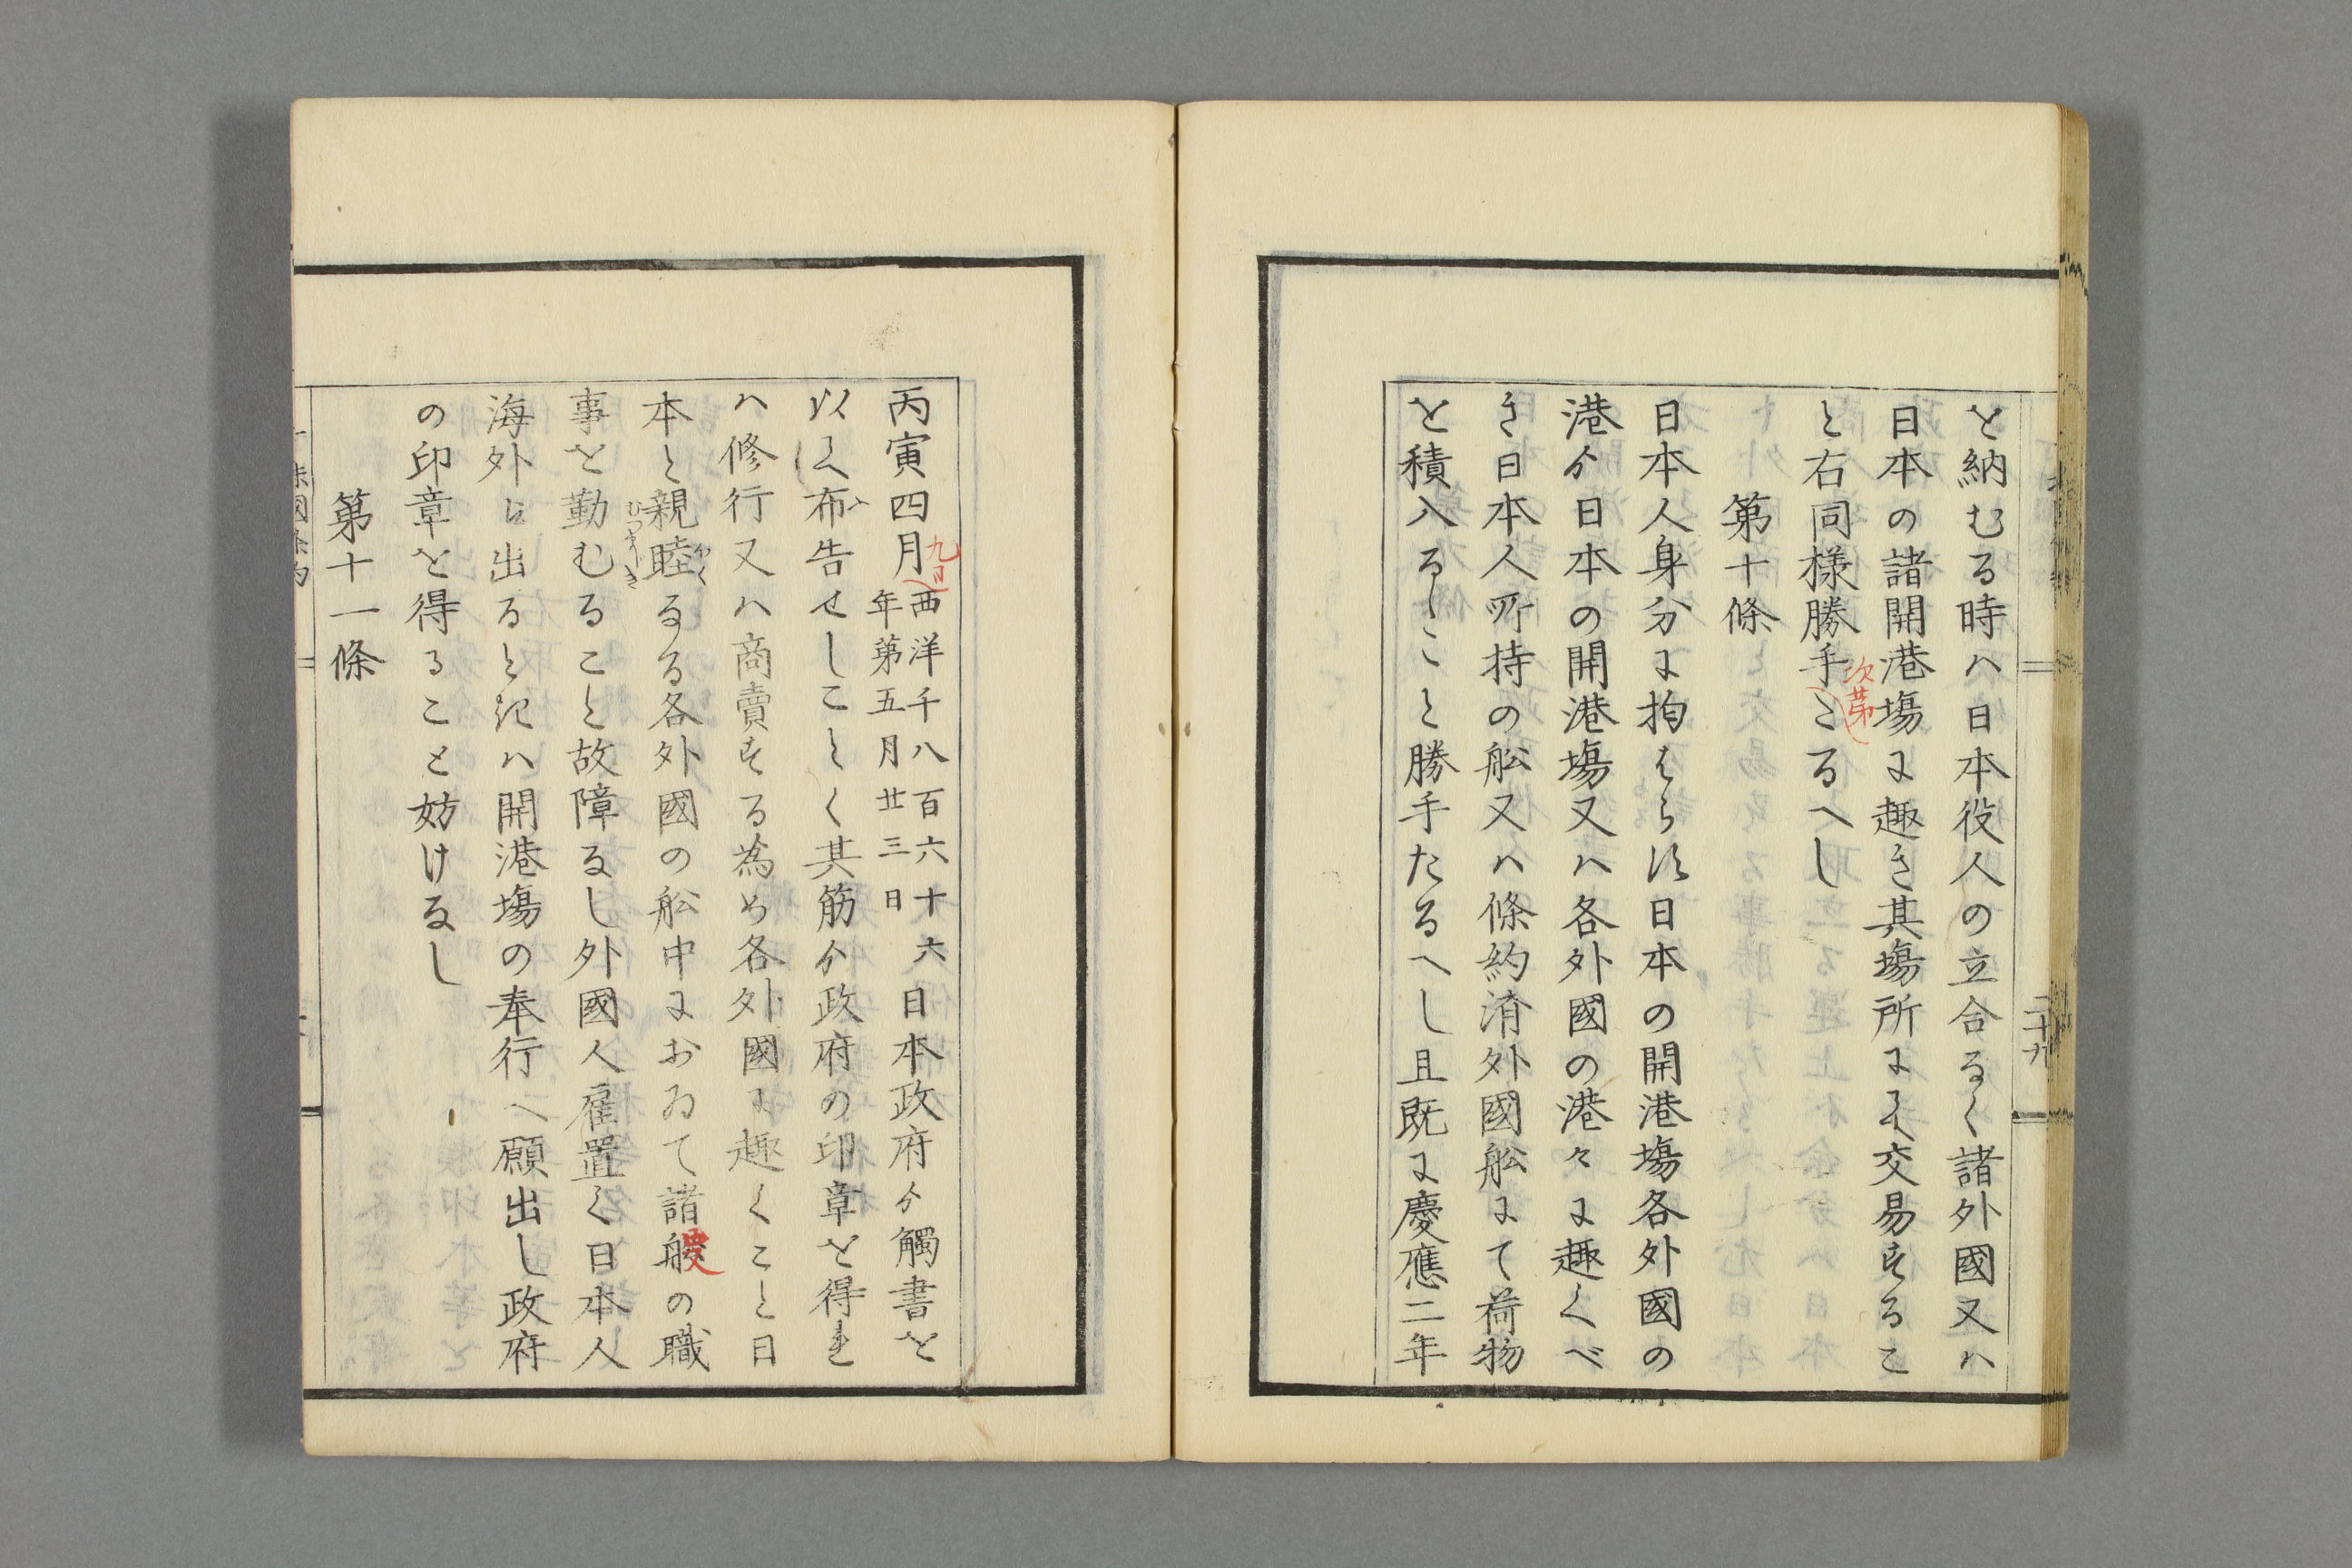 を納むる時ハ日本役人の立合なく諸外國又ハ
日本の諸開港塲に趣き其塲所にて交易するこ
と右同様勝手たるへし
次第
第十條
日本人身分に拘はらす日本の開港塲各外國の
港ゟ日本の開港塲又ハ各外國の港々に趣くべ
き日本人所持の舩又ハ條約済外國舩にて荷物
を積入るゝこと勝手たるへし且既に慶應二年
二十九
丙寅四月西洋千八百六十六年第五月廿三日日本政府ゟ觸書を
九日
以て布告せしことく其筋ゟ政府の印章を得れ
ハ修行又ハ商賣する為め各外國に趣くこと日
本と親睦なる各外國の舩中におゐて諸般の職
事を勤むること故障なし外國人雇置く日本人
海外に出ると記ハ開港塲の奉行へ願出し政府
の印章を得ること妨けなし
第十一條